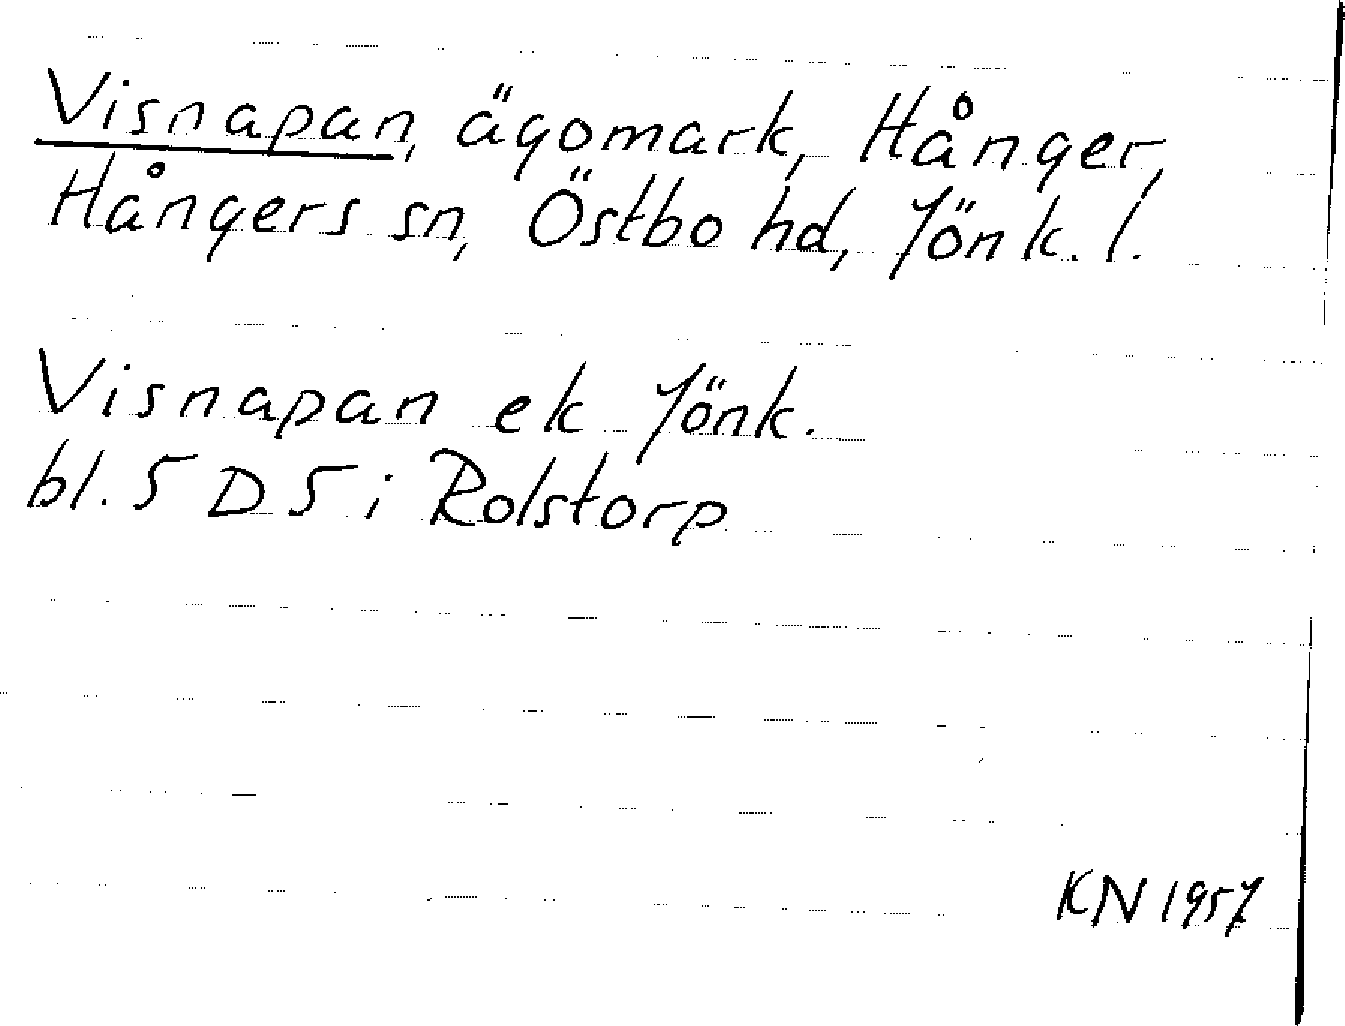 Visnapan, ägomark, Hånger,
Hångers sn, Östbo hd, Jönk. l.
Visnapan ek Jönk.
bl. 5 D 5 i Rolstorp
KN 1957